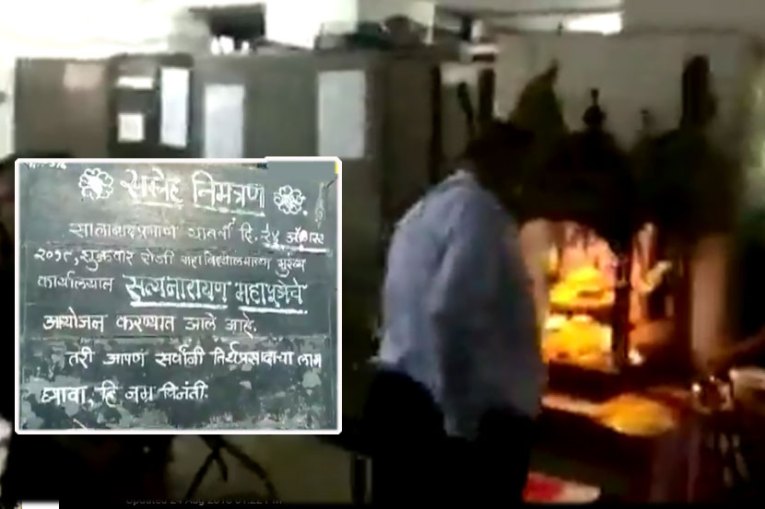 सस्नेह निमंत्रण
सालाबादप्रमाणे यावर्षी दि. २४ ऑगस्ट
२०१८, शुक्रवार रोजी महाविद्यालयाच्या मुख्य
कार्यालयात सत्यनारायण महापूजेचे
आयोजन करण्यात आले आहे.
तरी आपण सर्वांनी तिर्थप्रसादाचा लाभ
घ्यावा, हि नम्र विनंती.
Updated 24 Aug 2018 01:22 PM